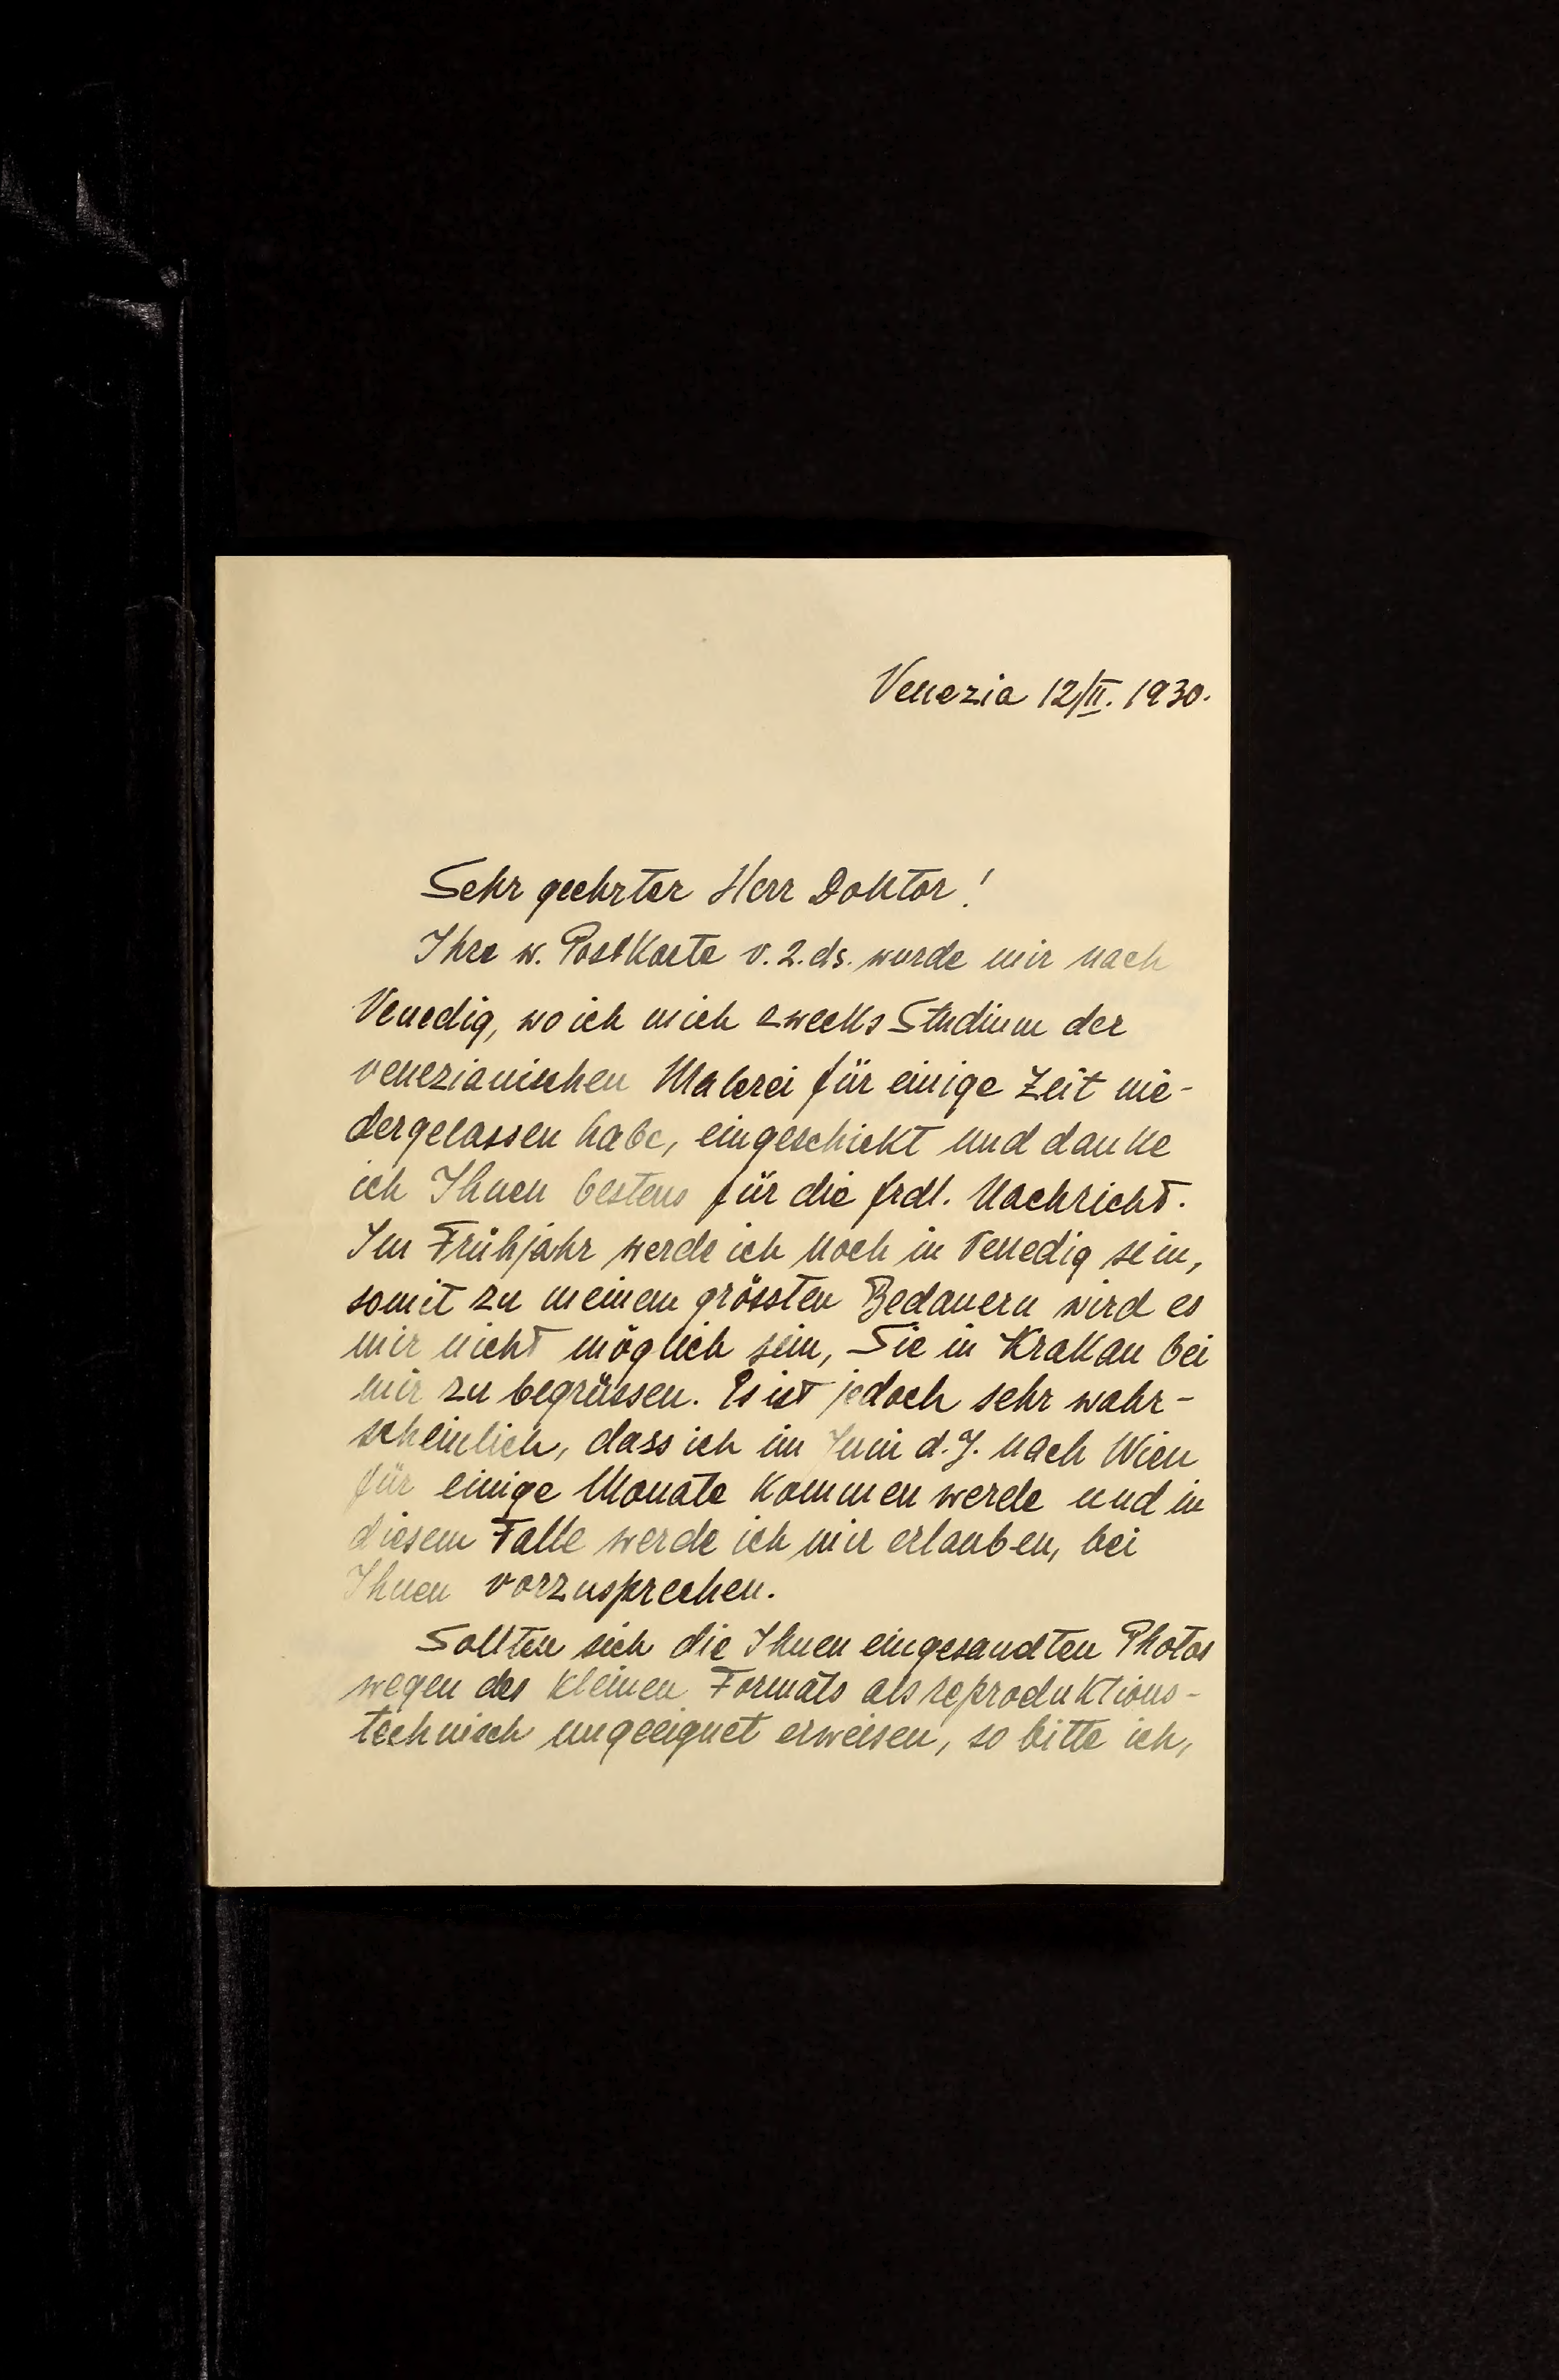 Venezia 12/II. 1930.
Sehr geehrter Herr Doktor!
Ihre w. Postkarte v. 2. ds. wurde mir nach
Venedig, wo ich mich zwecks Studium der
venezianischen Malerei für einige Zeit nie-
dergelassen habe, eingeschickt und danke
ich Ihnen bestens für die frdl. Nachricht.
Im Frühjahr werde ich noch in Venedig sein,
somit zu meinem grössten Bedauern wird es
mir nicht möglich sein, Sie in Krakau bei
mir zu begrüssen. Es ist jedoch sehr wahr-
scheinlich, dass ich im Juni d. J. nach Wien
für einige Monate kommen werde und in
diesem Falle werde ich mir erlauben, bei
Ihnen vorzusprechen.
Sollten sich die Ihnen eingesandten Photos
wegen des kleinen Formats als reproduktions-
technisch ungeeignet erweisen, so bitte ich,